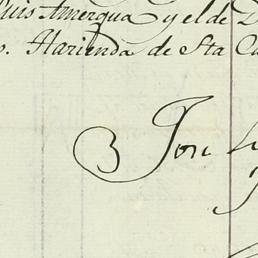 Luis Amerqua y el de D
o. Harienda de Sta Ca
3 Jon L